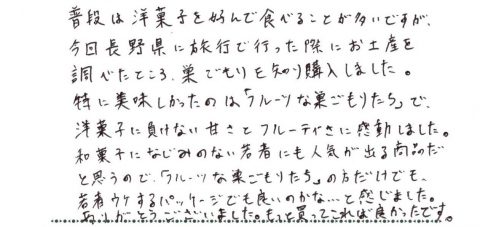 普段は洋菓子を好んで食べることが多いですが、
今回長野県に旅行で行った際にお土産を
調べたところ、巣ごもりを知り購入しました。
特に美味しかったのは「フルーツな巣ごもりたち」で、
洋菓子に負けない甘さとフルーティさに感動しました。
和菓子になじみのない若者にも人気が出る商品だ
と思うので、「フルーツな巣ごもりたち」の方だけでも、
若者ウケするパッケージでも良いのかな…と感じました。
ありがとうございました。もっと買ってこれば良かったです。